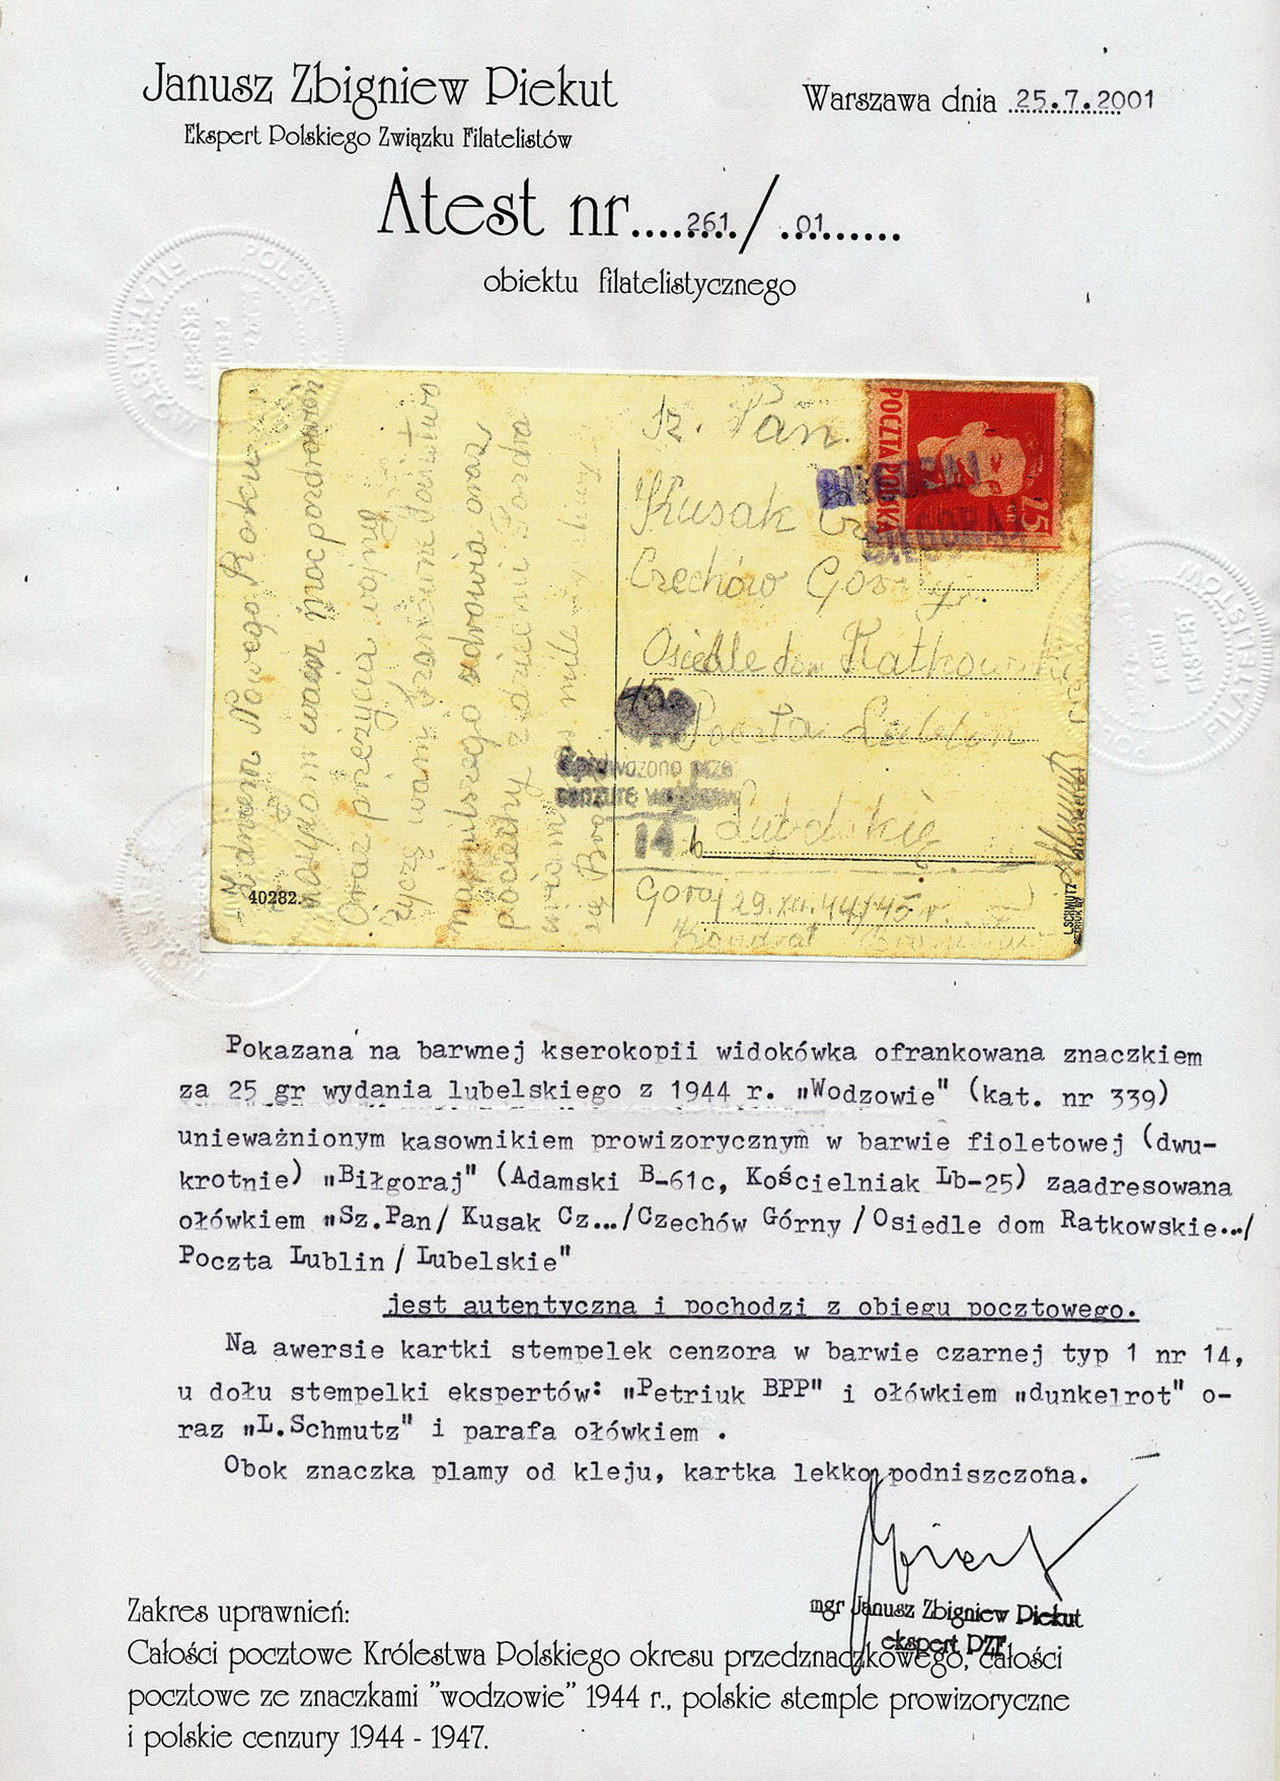 Janusz Zbigniew Piekut
Ekspert Polskiego Związku Filatelistów
Warszawa dnia 25.7.2001
Atest nr....261./.01.......
obiektu filatelistycznego
POLSK
FILATELISTÓW
EKSPERT
Z dniem Nowego Roku
wam moc pozdrowień
Oraz przeżycia
życzę wam
zdrowia oraz
pociechy z dzieci
Sz. Pan.
Kusak Cz
Czechów Gór
Osiedle dom Ratkowskie
Poczta Lublin
Lubelskie
Goraj 29.XII.44/45 r.
Kondrat
POCZTA POLSKA
25
BIŁGORAJ
BIŁGORAJ
Sprawdzono prze
cenzurę wojskową
14
40282.
L.SCHMUTZ
Pokazana na barwnej kserokopii widokówka ofrankowana znaczkiem
za 25 gr wydania lubelskiego z 1944 r. "Wodzowie" (kat. nr 339)
unieważnionym kasownikiem prowizorycznym w barwie fioletowej (dwu-
krotnie) "Biłgoraj" (Adamski B-61c, Kościelniak Lb-25) zaadresowana
ołówkiem "Sz.Pan/ Kusak Cz.../Czechów Górny /Osiedle dom Ratkowskie../
Poczta Lublin/ Lubelskie"
jest autentyczna i pochodzi z obiegu pocztowego.
Na awersie kartki stempelek cenzora w barwie czarnej typ 1 nr 14,
u dołu stempelki ekspertów: "Petriuk BPP" i ołówkiem "dunkelrot" o-
raz "L.Schmutz" i parafa ołówkiem .
Obok znaczka plamy od kleju, kartka lekko podniszczona.
mgr Janusz Zbigniew Piekut
ekspert PZF
Zakres uprawnień:
Całości pocztowe Królestwa Polskiego okresu przedznaczkowego, całości
pocztowe ze znaczkami "wodzowie" 1944 r., polskie stemple prowizoryczne
i polskie cenzury 1944 - 1947.